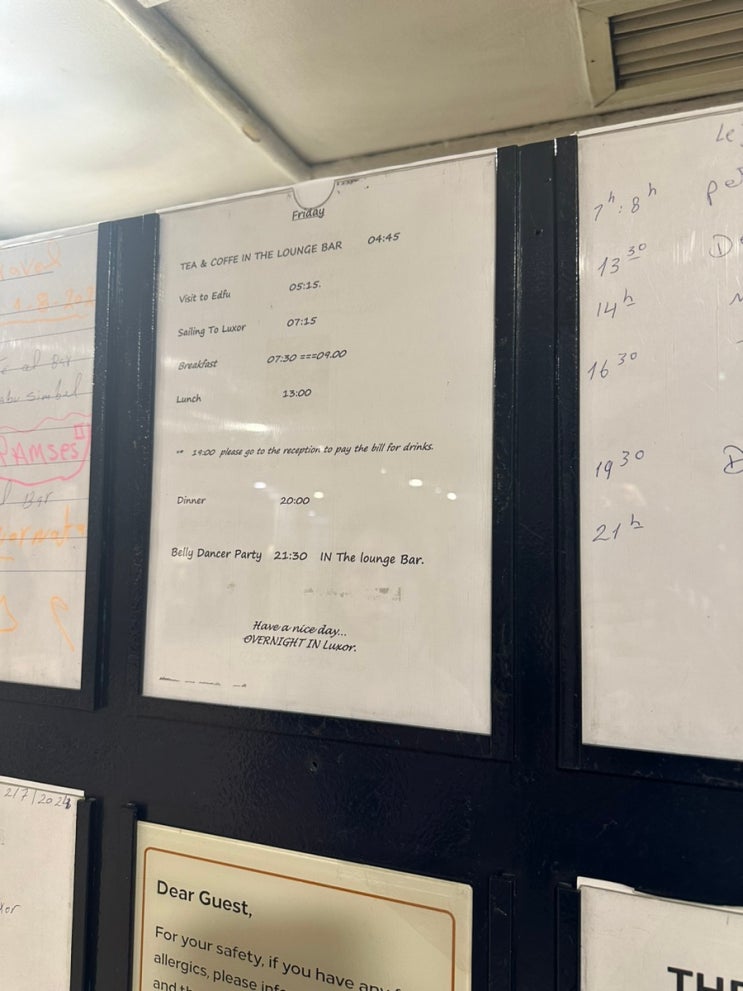 Friday
TEA & COFFE IN THE LOUNGE BAR 04:45
Visit to Edfu 05:15.
Sailing To Luxor 07:15
Breakfast 07:30 ===09.00
Lunch 13:00
** 19:00 please go to the reception to pay the bill for drinks.
Dinner 20:00
Belly Dancer Party 21:30 IN The lounge Bar.
Have a nice day...
OVERNIGHT IN Luxor.
al
simbel
RAMSES
Bar
7h: 8h
13 30
14h
16 30
19 30
21h
2/7/2024
Dear Guest,
For your safety, if you have any
allergics, please
and